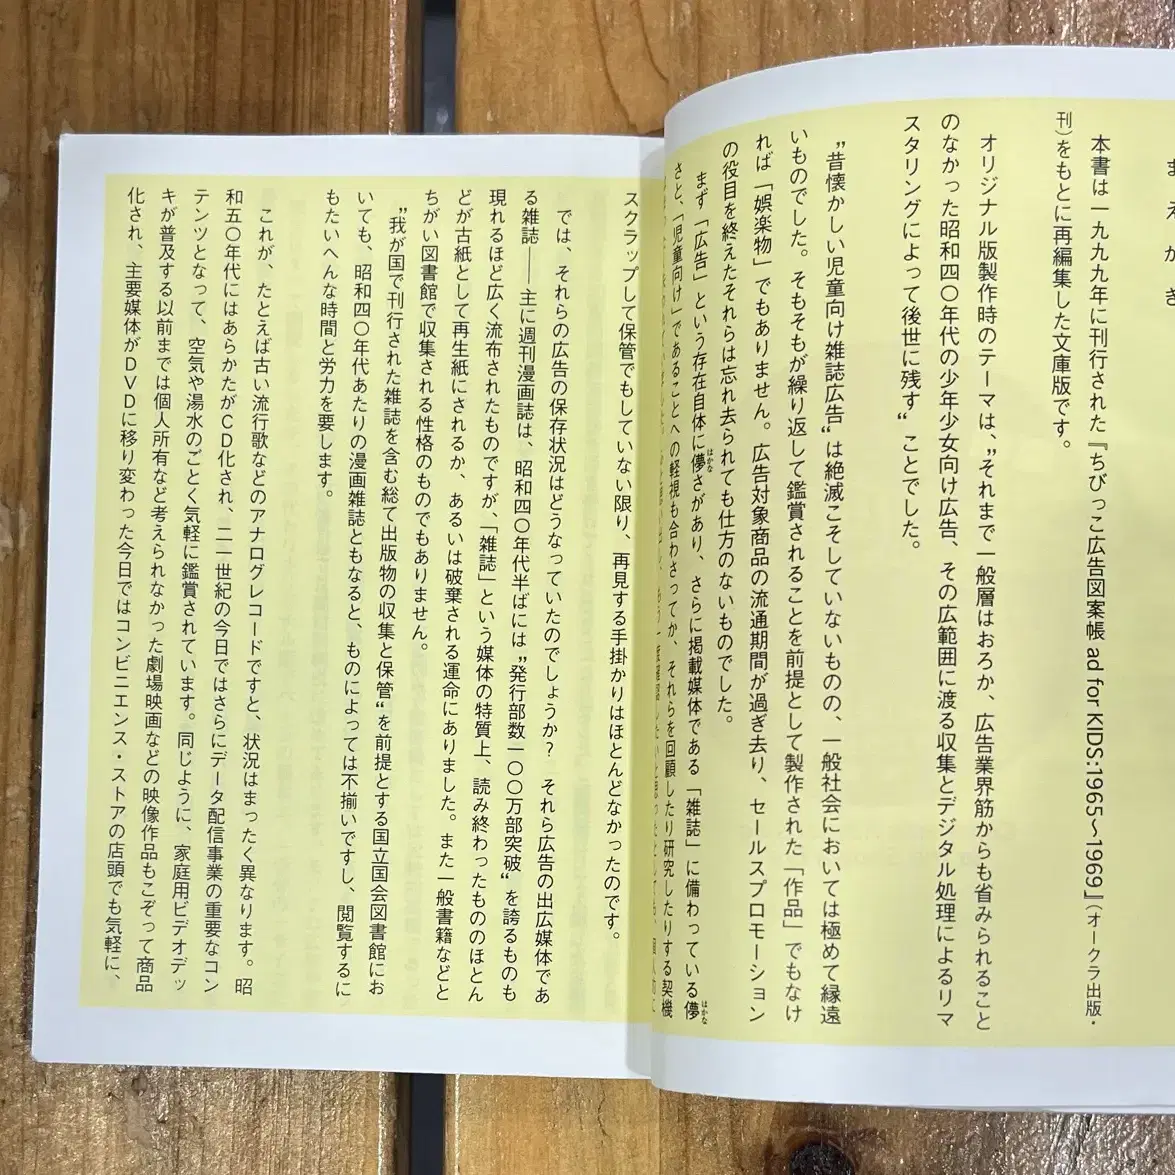 まえがき
本書は一九九九年に刊行された『ちびっこ広告図案帳 ad for KIDS:1965〜1969』(オークラ出版・
刊)をもとに再編集した文庫版です。
オリジナル版製作時のテーマは、〝それまで一般層はおろか、広告業界筋からも省みられること
のなかった昭和四〇年代の少年少女向け広告、その広範囲に渡る収集とデジタル処理によるリマ
スタリングによって後世に残す〟ことでした。
〝昔懐かしい児童向け雑誌広告〟は絶滅こそしていないものの、一般社会においては極めて縁遠
いものでした。そもそもが繰り返して鑑賞されることを前提として製作された「作品」でもなけ
れば「娯楽物」でもありません。広告対象商品の流通期間が過ぎ去り、セールスプロモーション
の役目を終えたそれらは忘れ去られても仕方のないものでした。
まず「広告」という存在自体に儚さがあり、さらに掲載媒体である「雑誌」に備わっている儚
はかな
はかな
さと、「児童向け」であることへの軽視も合わさってか、それらを回顧したり研究したりする契機
スクラップして保管でもしていない限り、再見する手掛かりはほとんどなかったのです。
では、それらの広告の保存状況はどうなっていたのでしょうか? それら広告の出広媒体であ
る雑誌――主に週刊漫画誌は、昭和四〇年代半ばには〝発行部数一〇〇万部突破〟を誇るものも
現れるほど広く流布されたものですが、「雑誌」という媒体の特質上、読み終わったもののほとん
どが古紙として再生紙にされるか、あるいは破棄される運命にありました。また一般書籍などと
ちがい図書館で収集される性格のものでもありません。
〝我が国で刊行された雑誌を含む総て出版物の収集と保管〟を前提とする国立国会図書館にお
いても、昭和四〇年代あたりの漫画雑誌ともなると、ものによっては不揃いですし、閲覧するに
もたいへんな時間と労力を要します。
これが、たとえば古い流行歌などのアナログレコードですと、状況はまったく異なります。昭
和五〇年代にはあらかたがCD化され、二一世紀の今日ではさらにデータ配信事業の重要なコン
テンツとなって、空気や湯水のごとく気軽に鑑賞されています。同じように、家庭用ビデオデッ
キが普及する以前までは個人所有など考えられなかった劇場映画などの映像作品もこぞって商品
化され、主要媒体がDVDに移り変わった今日ではコンビニエンス・ストアの店頭でも気軽に、